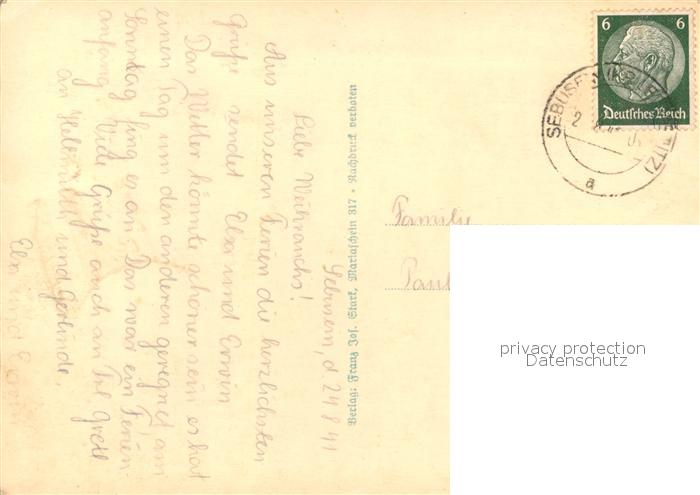 Sebusein, d 24.8.41
Liebe Weihrauchs!
Aus unseren Ferien die herzlichsten
Grüße sendet Elsa und Erwin
Das Wetter könnte schöner sein es hat
einen Tag um den anderen geregnet am
Sonntag fing es an. Das war ein Ferien-
anfang. Viele Grüße auch an Frl Gretl
an Hellmuth und Gerlinde.
und
Verlag: Franz Jos. Stark, Mariaschein 317 • Nachdruck verboten
6 6
Deutsches Reich
a
Familie
Paul
privacy protection
Datenschutz